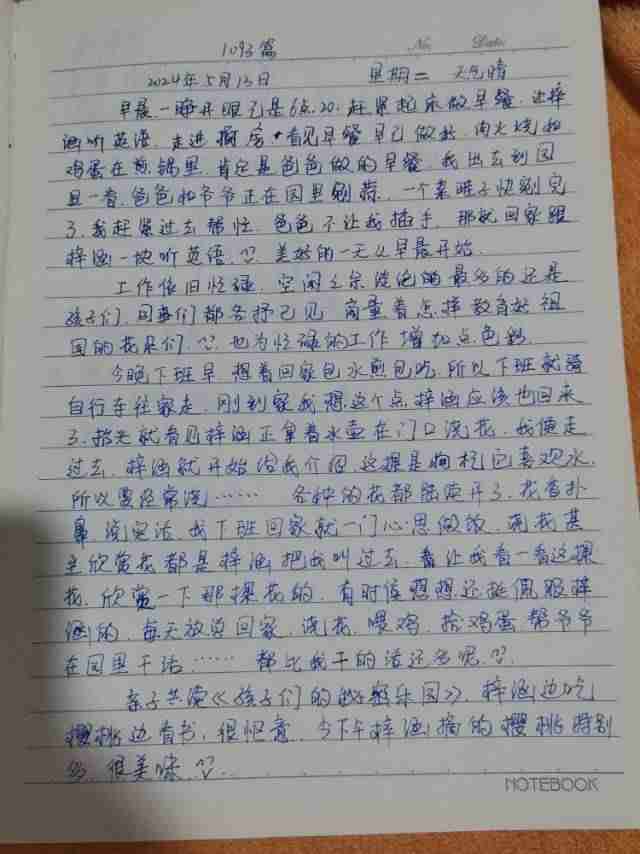 1093篇
No. Date
2024年5月13日 星期二 天气晴
早晨一睁开眼已是6点20.赶紧起床做早餐,边择
涵听英语,走进厨房,看见早餐早已做好,肉火烧和
鸡蛋在煎锅里,肯定是爸爸做的早餐,我出去到园
里一看,爸爸和爷爷正在园里剜蒜,一个蒜畦子快剜完
了.我赶紧过去帮忙,爸爸不让我插手,那就回家跟
梓涵一块听英语.美好的一天从早晨开始.
工作依旧忙碌,空闲之余谈论的最多的还是
孩子们,同事们都各抒己见,商量着怎样教育好祖
国的花朵们.也为忙碌的工作增加点色彩.
今晚下班早,想着回家包水煎包吃,所以下班就骑
自行车往家走,刚到家我想这个点梓涵应该也回来
了.抬头就看见梓涵正拿着水壶在门口浇花,我便走
过去,梓涵就开始给我介绍,这棵是 它喜欢水,
所以要经常浇…… 各种的花都陆续开了.花香扑
鼻,说实话,我下班回家就一门心思做饭,而我甚
至欣赏花都是梓涵把我叫过去,看让我看一看这棵
花,欣赏一下那棵花的,有时候想想还挺佩服梓
涵的,每天放学回家,浇花,喂鸡,拾鸡蛋帮爷爷
在园里干活…… 都比我干的活还多呢.
亲子共读《孩子们的 乐园》,梓涵边吃
樱桃边看书,很惬意,今下午梓涵摘的樱桃特别
多,很美味.
NOTEBOOK